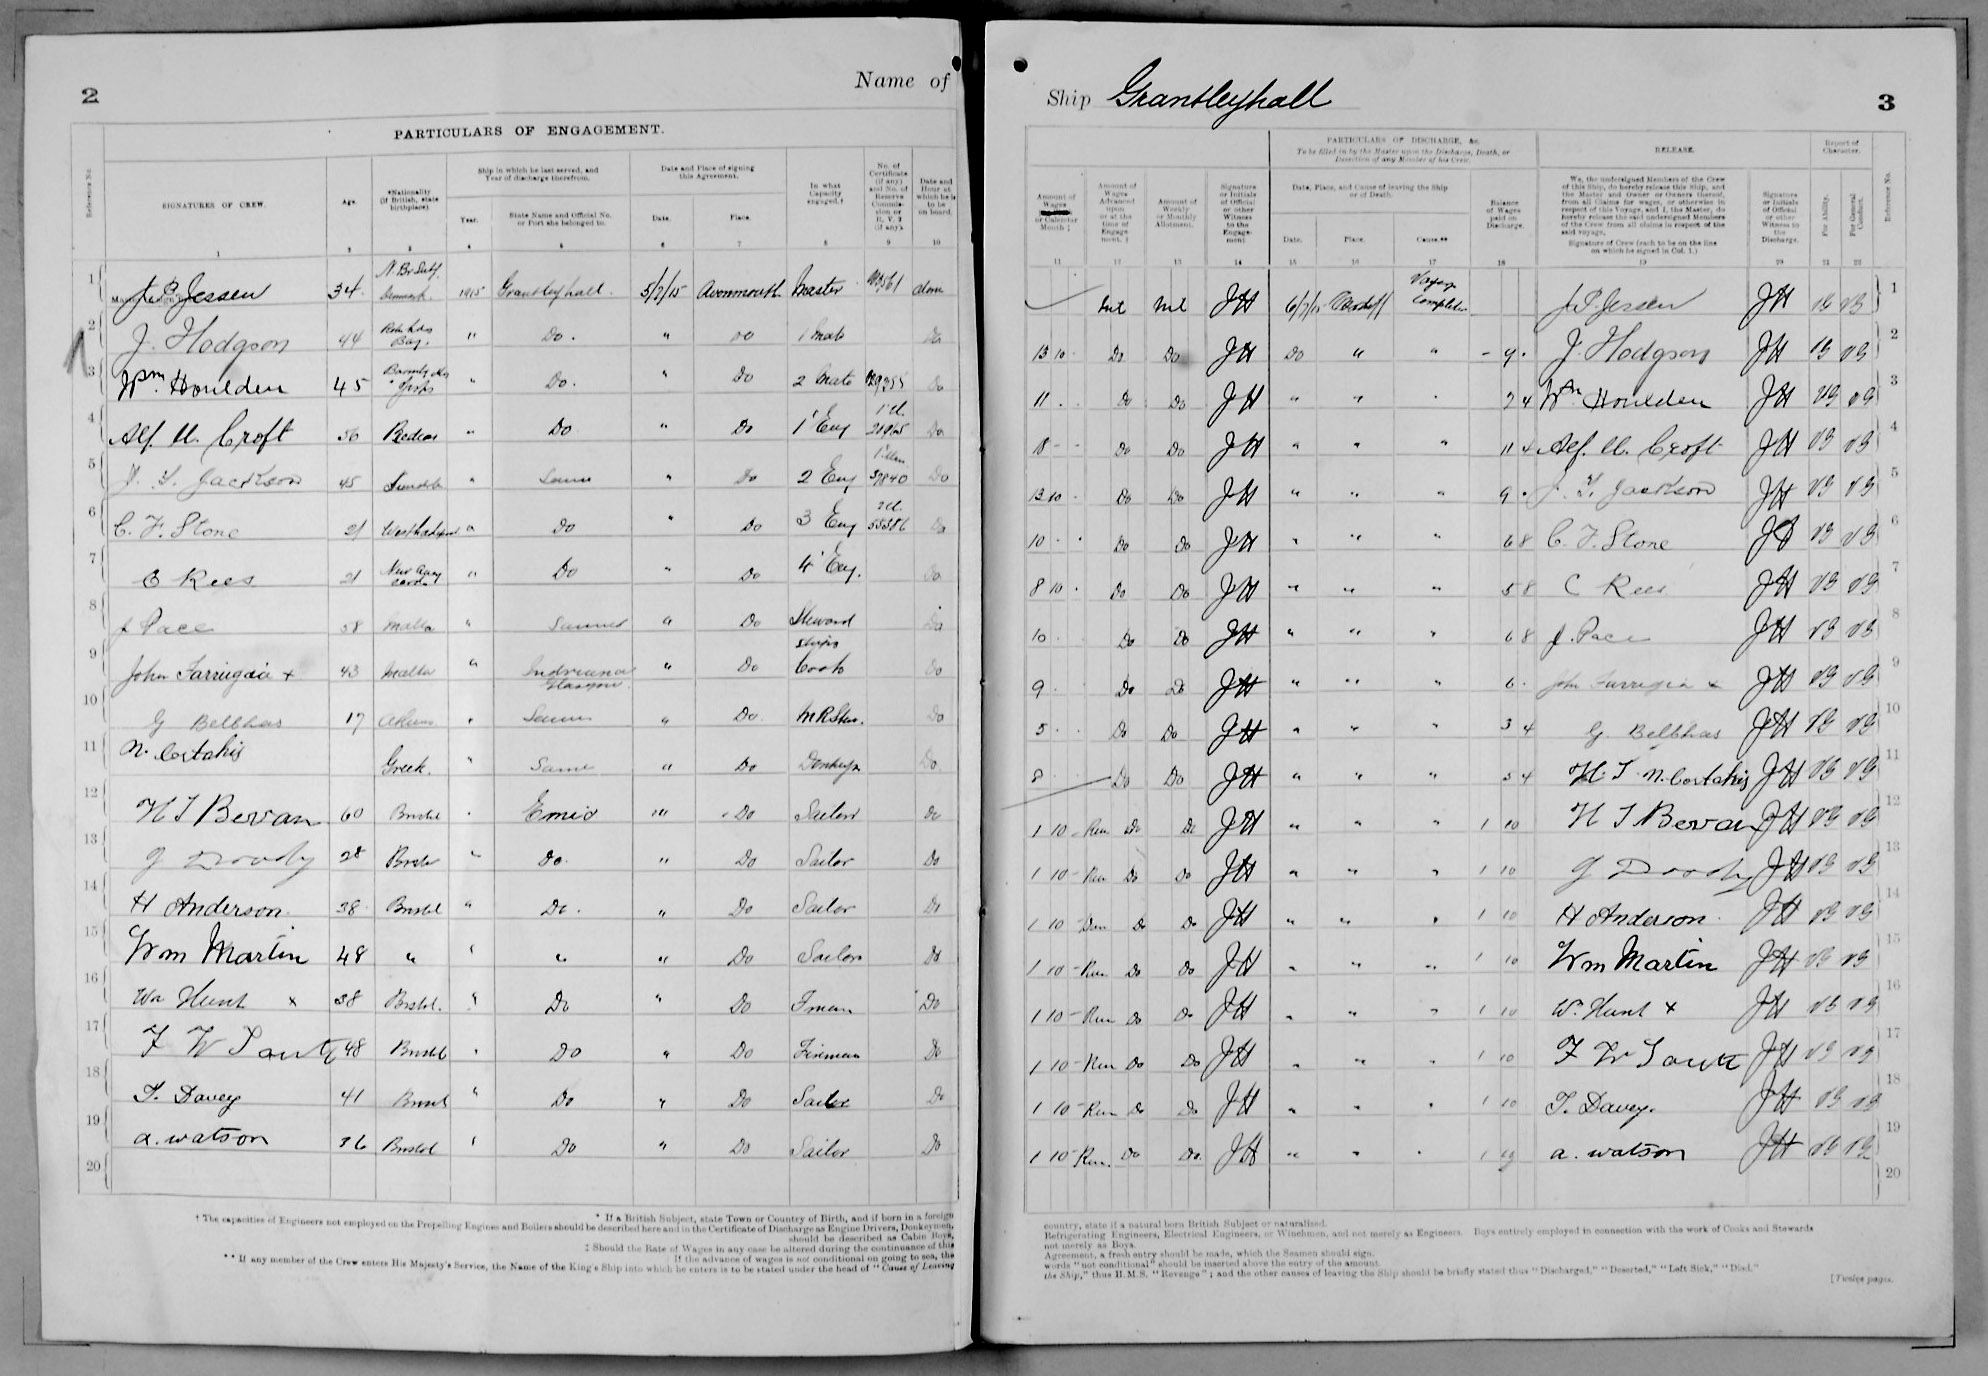 2
Name of
PARTICULARS OF ENGAGEMENT.
Reference No.
SIGNATURES OF CREW.
Age.
*Nationality (if British, state birthplace).
Ship in which he last served, and Year of discharge therefrom.
Year.
State Name and Official No. or Port she belonged to.
Date and Place of signing this Agreement.
Date.
Place.
In what Capacity engaged.†
No. of Certificate (if any) and No. of Reserve Commission or R. V. 2 (if any).
Date and Hour at which he is to be on board.
1 2 3 4 5 6 7 8 9 10
1 J. P. Jessen 34 N. Br Subj. Denmark 1915 Grantleyhall 5/7/15 Avonmouth Master
2 J. Hodgson 44 Bay. " Do. " Do 1 Mate Do
3 Wm. Houlden 45 " Do. " Do 2 Mate Do
4 Alf. U. Croft 50 " Do " Do 1 Eng Do
5 J. Y. Jackson 45 " Same " Do 2 Eng 37840 Do
6 C. F. Stone 21 West Hartlepool " Do " Do 3 Eng Do
7 C Rees 21 " Do " Do 4 Eng. Do
8 J Pace 58 Malta " Same " Do Steward Do
9 John Farrugia x 43 Malta " Indriana Glasgow " Do Ships Cook Do
10 G Belbhas 17 " Same " Do M R Stew. Do
11 N. Costakis Greek. " Same " Do Donkeyn Do
12 H J Bevan 60 Bristol " Do Sailor Do
13 G Doody 28 Bristol " Do. " Do Sailor Do
14 H Anderson. 38 Bristol " Do. " Do Sailor Do
15 Wm Martin 48 " " " " Do Sailor Do
16 Wm Hunt x 38 Bristol. " Do " Do Fman Do
17 F W 48 Bristol " Do " Do Fireman Do
18 T. Davey 41 Bristol " Do " Do Sailor Do
19 a. watson 36 Bristol " Do " Do Sailor Do
20
* If a British Subject, state Town or Country of Birth, and if born in a foreign
† The capacities of Engineers not employed on the Propelling Engines and Boilers should be described here and in the Certificate of Discharge as Engine Drivers, Donkeymen,
should be described as Cabin Boys,
‡ Should the Rate of Wages in any case be altered during the continuance of this
If the advance of wages is not conditional on going to sea, the
** If any member of the Crew enters His Majesty's Service, the Name of the King's Ship into which he enters is to be stated under the head of "Cause of Leaving
Ship Grantleyhall
3
PARTICULARS OF DISCHARGE, &c.
To be filled in by the Master upon the Discharge, Death, or Desertion of any Member of his Crew.
RELEASE.
Report of Character.
Amount of Wages or Calendar Month ‡
Amount of Wages Advanced upon or at the time of Engagement. ‡
Amount of Weekly or Monthly Allotment.
Signature or Initials of Official or other Witness to the Engagement
Date, Place, and Cause of leaving the Ship or of Death.
Date.
Place.
Cause.**
Balance of Wages paid on Discharge.
We, the undersigned Members of the Crew of this Ship, do hereby release this Ship, and the Master and Owner or Owners thereof, from all Claims for wages, or otherwise in respect of this Voyage, and I, the Master, do hereby release the said undersigned Members of the Crew from all claims in respect of the said voyage.
Signature of Crew (each to be on the line on which he signed in Col. 1.)
Signature or Initials of Official or other Witness to the Discharge.
For Ability.
For General Conduct.
Reference No.
11 12 13 14 15 16 17 18 19 20 21 22
Nil Nil JH 6/7/15 Cardiff Voyage Completed J. P. Jessen JH VG VG 1
13 10 Do Do JH Do " " - 9 - J. Hodgson JH VG VG 2
11 Do Do JH " " " 7 4 Wm Houlden JH VG VG 3
18 - - Do Do JH " " " 11 4 Alf. U. Croft JH VG VG 4
13 10 Do Do JH " " " 9 - J. Y. Jackson JH VG VG 5
10 Do Do JH " " " 6 8 C. F. Stone JH VG VG 6
8 10 Do Do JH " " " 5 8 C Rees JH VG VG 7
10 Do Do JH " " " 6 8 J. Pace JH VG VG 8
9 Do Do JH " " " 6 John Farrugia x JH VG VG 9
5 Do Do JH " " " 3 4 G Belbhas JH VG VG 10
8 Do Do JH " " " 5 4 N. Costakis JH VG VG 11
1 10 - Run Do Do JH " " " 1 10 H J Bevan JH VG VG 12
1 10 - Run Do Do JH " " " 1 10 G Doody JH VG VG 13
1 10 - Do Do JH " " " 1 10 H Anderson. JH VG VG 14
1 10 - Run Do Do JH " " " 1 10 Wm Martin JH VG VG 15
1 10 - Run Do Do JH " " " 1 10 Wm Hunt x JH VG VG 16
1 10 - Run Do Do JH " " " 1 10 F W JH VG VG 17
1 10 - Run Do Do JH " " " 1 10 T. Davey. JH VG VG 18
1 10 - Run. Do Do. JH " " " 1 10 a. watson JH VG VG 19
20
country, state if a natural born British Subject or naturalised.
Refrigerating Engineers, Electrical Engineers, or Winchmen, and not merely as Engineers. Boys entirely employed in connection with the work of Cooks and Stewards
not merely as Boys.
Agreement, a fresh entry should be made, which the Seamen should sign.
words "not conditional" should be inserted above the entry of the amount.
the Ship," thus H.M.S. "Revenge"; and the other causes of leaving the Ship should be briefly stated thus "Discharged," "Deserted," "Left Sick," "Died."
[Twelve pages.